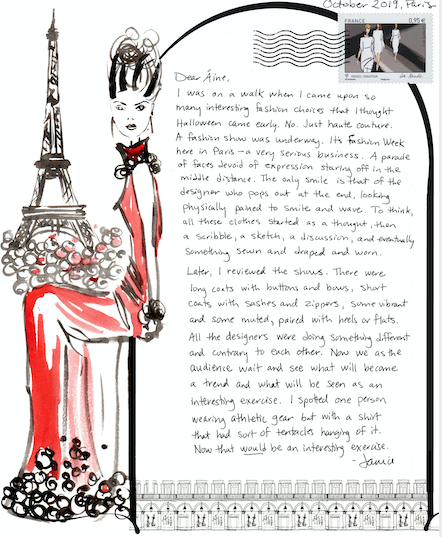 October 2019, Paris
FRANCE 0,95 €
Dear Áine,
I was on a walk when I came upon so
many interesting fashion choices that I thought
Halloween came early. No. Just haute couture.
A fashion show was underway. It's Fashion Week
here in Paris - a very serious business. A parade
of faces devoid of expression staring off in the
middle distance. The only smile is that of the
designer who pops out at the end, looking
physically pained to smile and wave. To think,
all these clothes started as a thought, then
a scribble, a sketch, a discussion, and eventually
something sewn and draped and worn.
Later, I reviewed the shows. There were
long coats with buttons and bows, short
coats with sashes and zippers, some vibrant
and some muted, paired with heels or flats.
All the designers were doing something different
and contrary to each other. Now we as the
audience wait and see what will become
a trend and what will be seen as an
interesting exercise. I spotted one person
wearing athletic gear but with a shirt
that had sort of tentacles hanging of it.
Now that would be an interesting exercise.
- Janice